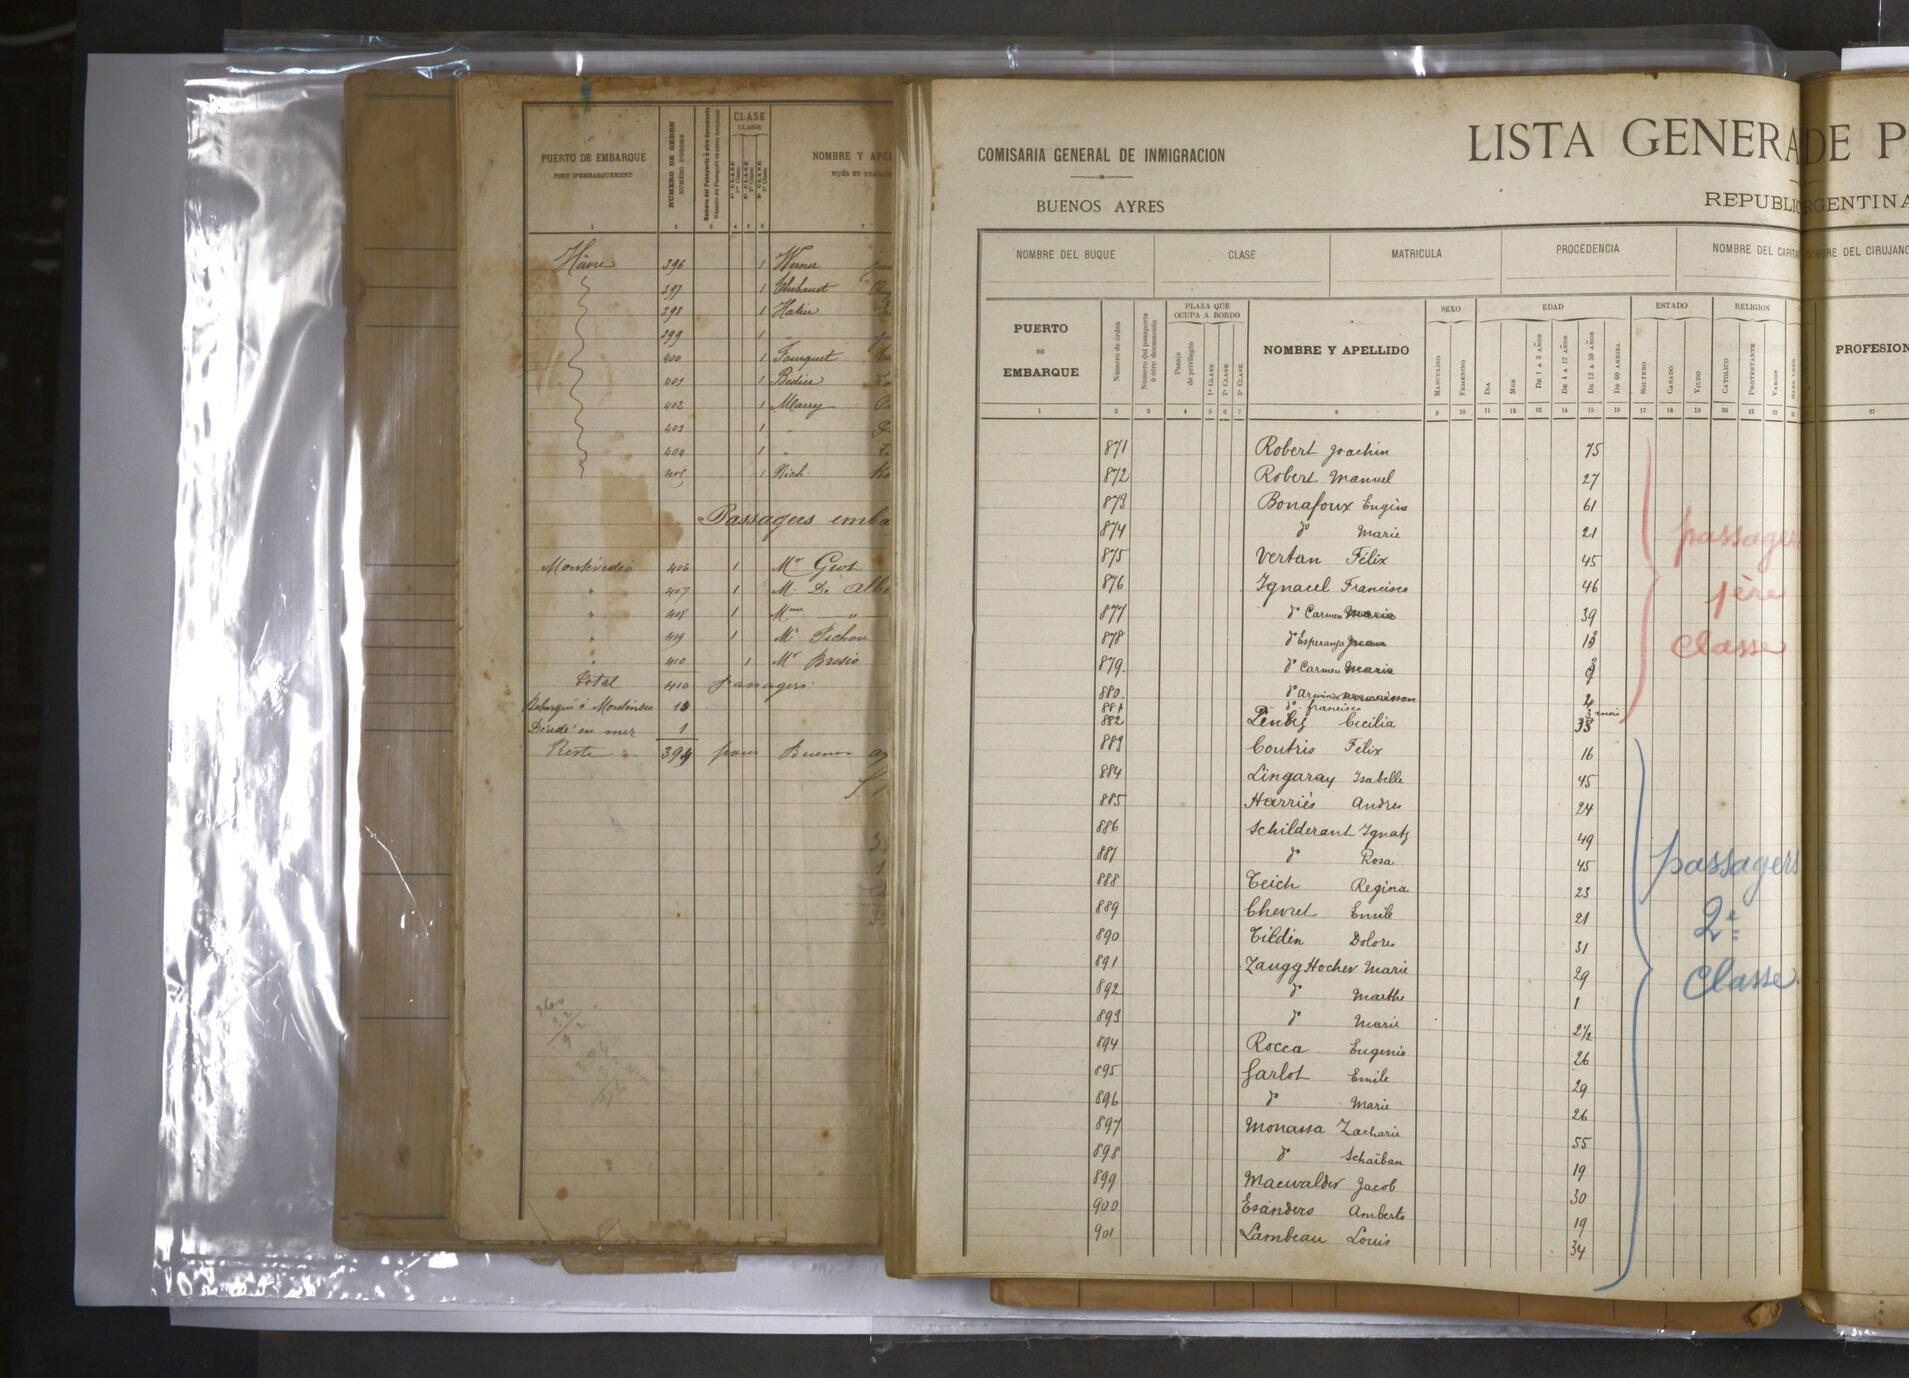 PUERTO DE EMBARQUE
PORT D'EMBARQUEMENT
NUMERO DE ORDEN
NUMÉRO D'ORDRE
Número del Pasaporte ú otro documento
CLASE
CLASSE
1ª CLASE
2ª CLASE
3ª CLASE
NOMBRE Y APEL
1 2 3 4 5 6 7
Hâvre 396 1 Werner
397 1 Thibaut
398 1 Hatier
399 1 "
400 1 Fourquet
401 1 Bedier
402 1 Marry
403 1 "
404 1 "
405 1 Nich
Passagers emba
Montévidéo 406 1 Mr Geot
" 407 1 M. De Albe
" 408 1 Mme "
" 409 1 Mr Pichon
" 410 1 Mr Brosio
Total 410 passagers
Débarqué à Montévideo 13
Décédé en mer 1
Reste 394 pour Buenos
COMISARIA GENERAL DE INMIGRACION
BUENOS AYRES
LISTA GENERA DE P
REPUBLI RGENTINA
NOMBRE DEL BUQUE
CLASE
MATRICULA
PROCEDENCIA
NOMBRE DEL CAPITA
OMBRE DEL CIRUJANO
PUERTO
DE
EMBARQUE
Número de órden
Número del pasaporte
ú otro documento
PLAZA QUE
OCUPA A BORDO
Pasaje
de privilegio
1ª CLASE
2ª CLASE
3ª CLASE
NOMBRE Y APELLIDO
SEXO
MASCULINO
FEMENINO
EDAD
DIA
MES
DE 1 A 3 AÑOS
DE 4 A 12 AÑOS
DE 13 A 59 AÑOS
DE 60 ARRIBA
ESTADO
SOLTERO
CASADO
VIUDO
RELIGION
CATOLICO
PROTESTANTE
VARIOS
PROFESION
1 2 3 4 5 6 7 8 9 10 11 12 13 14 15 16 17 18 19 20 21 22 27
871 Robert Joachin 75
872 Robert Manuel 27
873 Bonafoux Eugène 61
874 dº Marie 21
875 Vertan Félix 45
876 Ignacel Francisco 46
877 dº Carmen Marie 39
878 dº Esperanza Jean 13
879. dº Carmen Maria
880. dº 2
881 dº francisco 3 mois
882 Cecilia 33
883 Coutris Félix 16
884 Lingaray Isabelle 45
885 Harriès Andres 24
886 Schilderant Ignatz 49
887 dº Rosa 45
888 Teich Regina 23
889 Chevret Emile 21
890 Tildin Dolores 31
891 Zaugg Hocher Marie 29
892 dº Marthe 1
893 dº Marie 2 1/2
894 Rocca Eugenio 26
895 Garlot Emile 29
896 dº Marie 26
897 Monassa Zacharie 55
898 dº Schaïban 19
899 Maewalder Jacob 30
900 Esanders Amberto 19
901 Lambeau Louis 34
passagers
1ère
Classe
passagers
2e
Classe